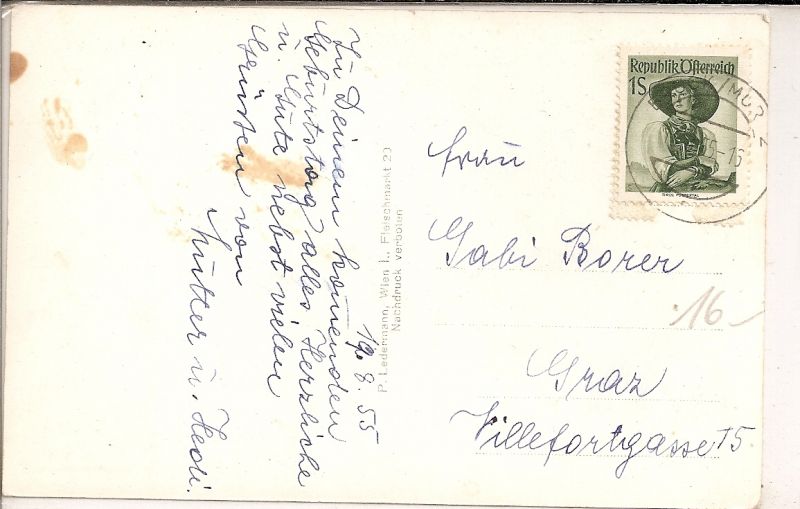 19.8.55
Zu Deinem komenden
Geburtstag alles Herzliche
u. Gute nebst vielen
Grüssen von
Mutter u. Hedi.
P. Ledermann, Wien I., Fleischmarkt 20
Nachdruck verboten
Republik Österreich
1S
MURZ
Frau
Gabi Borer
16
Graz
Villefortgasse 15